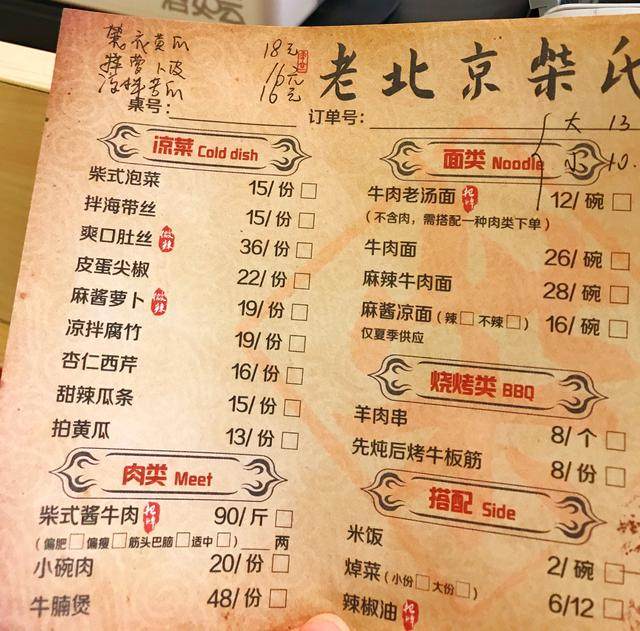 蓑衣黄瓜 18元
拌萝卜皮 16元
凉拌苦瓜 16元
老北京柴氏
桌号:
订单号:
大 13
小 10.
凉菜 Cold dish
柴式泡菜 15/份 □
拌海带丝 15/份 □
爽口肚丝 微辣 36/份 □
皮蛋尖椒 22/份 □
麻酱萝卜 微辣 19/份 □
凉拌腐竹 19/份 □
杏仁西芹 16/份 □
甜辣瓜条 15/份 □
拍黄瓜 13/份 □
肉类 Meet
柴式酱牛肉 招牌 90/斤 □
(偏肥□偏瘦□筋头巴脑□适中□)___两
小碗肉 20/份 □
牛腩煲 48/份 □
面类 Noodle
牛肉老汤面 招牌 12/碗 □
(不含肉,需搭配一种肉类下单)
牛肉面 26/碗 □
麻辣牛肉面 28/碗 □
麻酱凉面(辣□不辣□) 16/碗 □
仅夏季供应
烧烤类 BBQ
羊肉串 8/个 □
先炖后烤牛板筋 8/份 □
搭配 Side
米饭 2/碗 □
焯菜(小份□大份□) 6/12 □
辣椒油 招牌